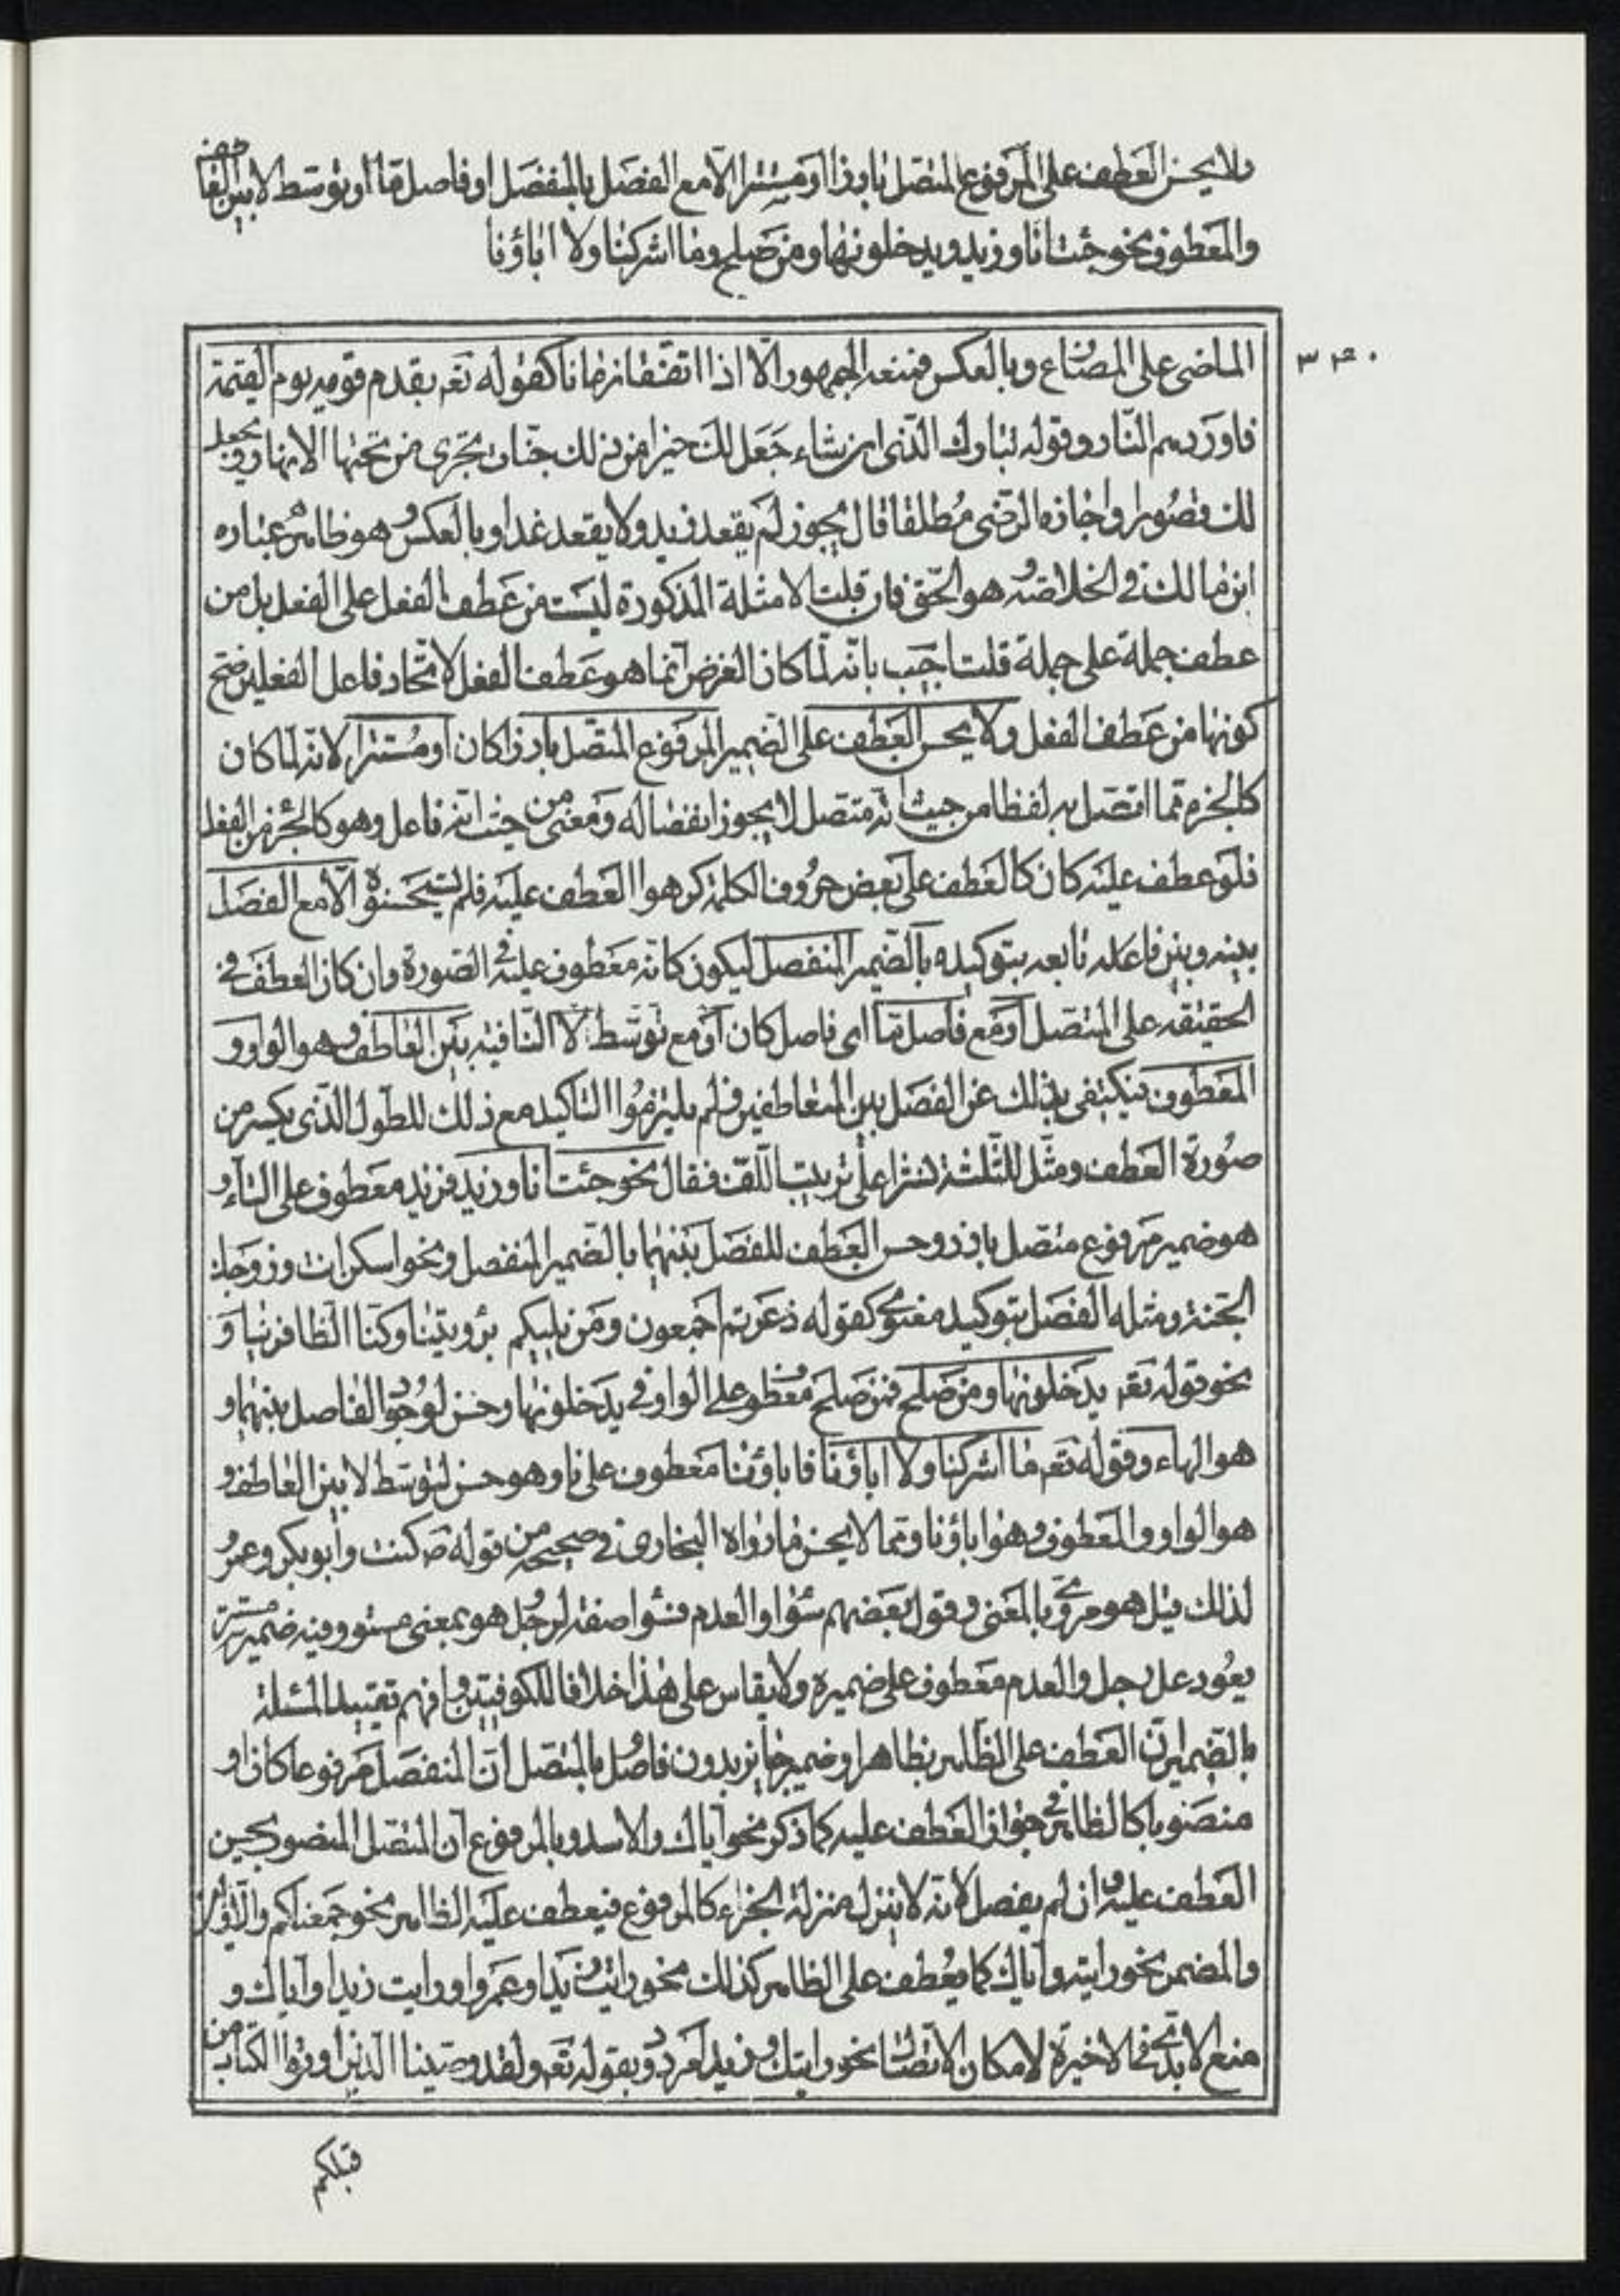 ولا يحسن العطف على المرفوع المتصل بارزا او مستترا الا مع الفصل بالمنفصل او فاصل ما او توسط لا بين العاطف
والمعطوف نحو جئت انا وزيد ويدخلونها ومن صلح وما اشركنا ولا اباؤنا
٣٤٠
الماضى على المضارع وبالعكس فمنعه الجمهور الا اذا اتفقا زمانا كقوله تعم يقدم قومه يوم القيمة
فاوردهم النار وقوله تبارك الذى ان شاء جعل لك خيرا من ذلك جنات تجرى من تحتها الانهار ويجعل
لك قصورا واجازه الرضى مطلقا قال يجوز لم يقعد زيد ولا يقعد غدا وبالعكس وهو ظاهر عباره
ابن مالك فى الخلاصة وهو الحق فان قلت الامثلة المذكورة ليست من عطف الفعل على الفعل بل من
عطف جملة على جملة قلت اجيب بانه لما كان الغرض انما هو عطف الفعل لاتحاد فاعل الفعلين صح
كونها من عطف الفعل ولا يحسن العطف على الضمير المرفوع المتصل بارزا كان او مستترا لانه لما كان
كالجزء مما اتصل به لفظا من حيث انه متصل لا يجوز انفصاله ومعنى من حيث انه فاعل وهو كالجزء من الفعل
فلو عطف عليه كان كالعطف على بعض حروف الكلمة كرهوا العطف عليه فلم يستحسنوه الا مع الفصل
بينه وبين فاعله تابعه بتوكيده بالضمير المنفصل ليكون كانه معطوف عليه فى الصورة وان كان العطف فى
الحقيقة على المتصل او مع فاصل ما اى فاصل كان او مع توسط لا النافية بين العاطف وهو الواو و
المعطوف فيكتفى بذلك عن الفصل بين المتعاطفين فلم يلتزموا التاكيد مع ذلك للطول الذى يكسر من
صورة العطف ومثل للثلثة نشرا على ترتيب اللف فقال نحو جئت انا وزيد فزيد معطوف على التاء و
هو ضمير مرفوع متصل بارز وحسن العطف للفصل بينهما بالضمير المنفصل ونحو اسكن انت وزوجك
الجنة ومثله الفصل بتوكيد معنوى كقوله ذعرتم اجمعون ومن يليكم برويتنا وكنا الظافرينا و
نحو قوله تعم يدخلونها ومن صلح فمن صلح معطوف على الواو فى يدخلونها وحسن لوجود الفاصل بينهما و
هو الهاء وقوله تعم ما اشركنا ولا اباؤنا فاباؤنا معطوف على نا وهو حسن لتوسط لا بين العاطف و
هو الواو والمعطوف وهو اباؤنا ومما لا يحسن ما رواه البخارى فى صحيحه من قوله ص كنت وابو بكر وعمر
لذلك قيل هو مروى بالمعنى وقول بعضهم سواء والعدم فسواء صفة لرجل وهو بمعنى مستو وفيه ضمير مستتر
يعود على رجل والعدم معطوف على ضميره ولا يقاس على هذا خلافا للكوفيين وافهم تقييد المسئلة
بالضمير ان العطف على الظاهر بظاهر او ضمير جايز بدون فاصل وبالمتصل ان المنفصل مرفوعا كان او
منصوبا كالظاهر فى جواز العطف عليه كما ذكر نحو اياك والاسد وبالمرفوع ان المتصل المنصوب يحسن
العطف عليه وان لم يفصل لانه لا ينزل منزلة الجزء كالمرفوع فيعطف عليه الظاهر نحو جمعناكم والاولين
والمضمر نحو رايته واياك كما يعطف على الظاهر كذلك نحو رايت زيدا وعمروا ورايت زيدا واياك و
منع الابدى فى الاخيرة لامكان الاتصال نحو رايتك وزيدا ورد بقوله تعم ولقد وصينا الذين اوتوا الكتاب من
قبلكم